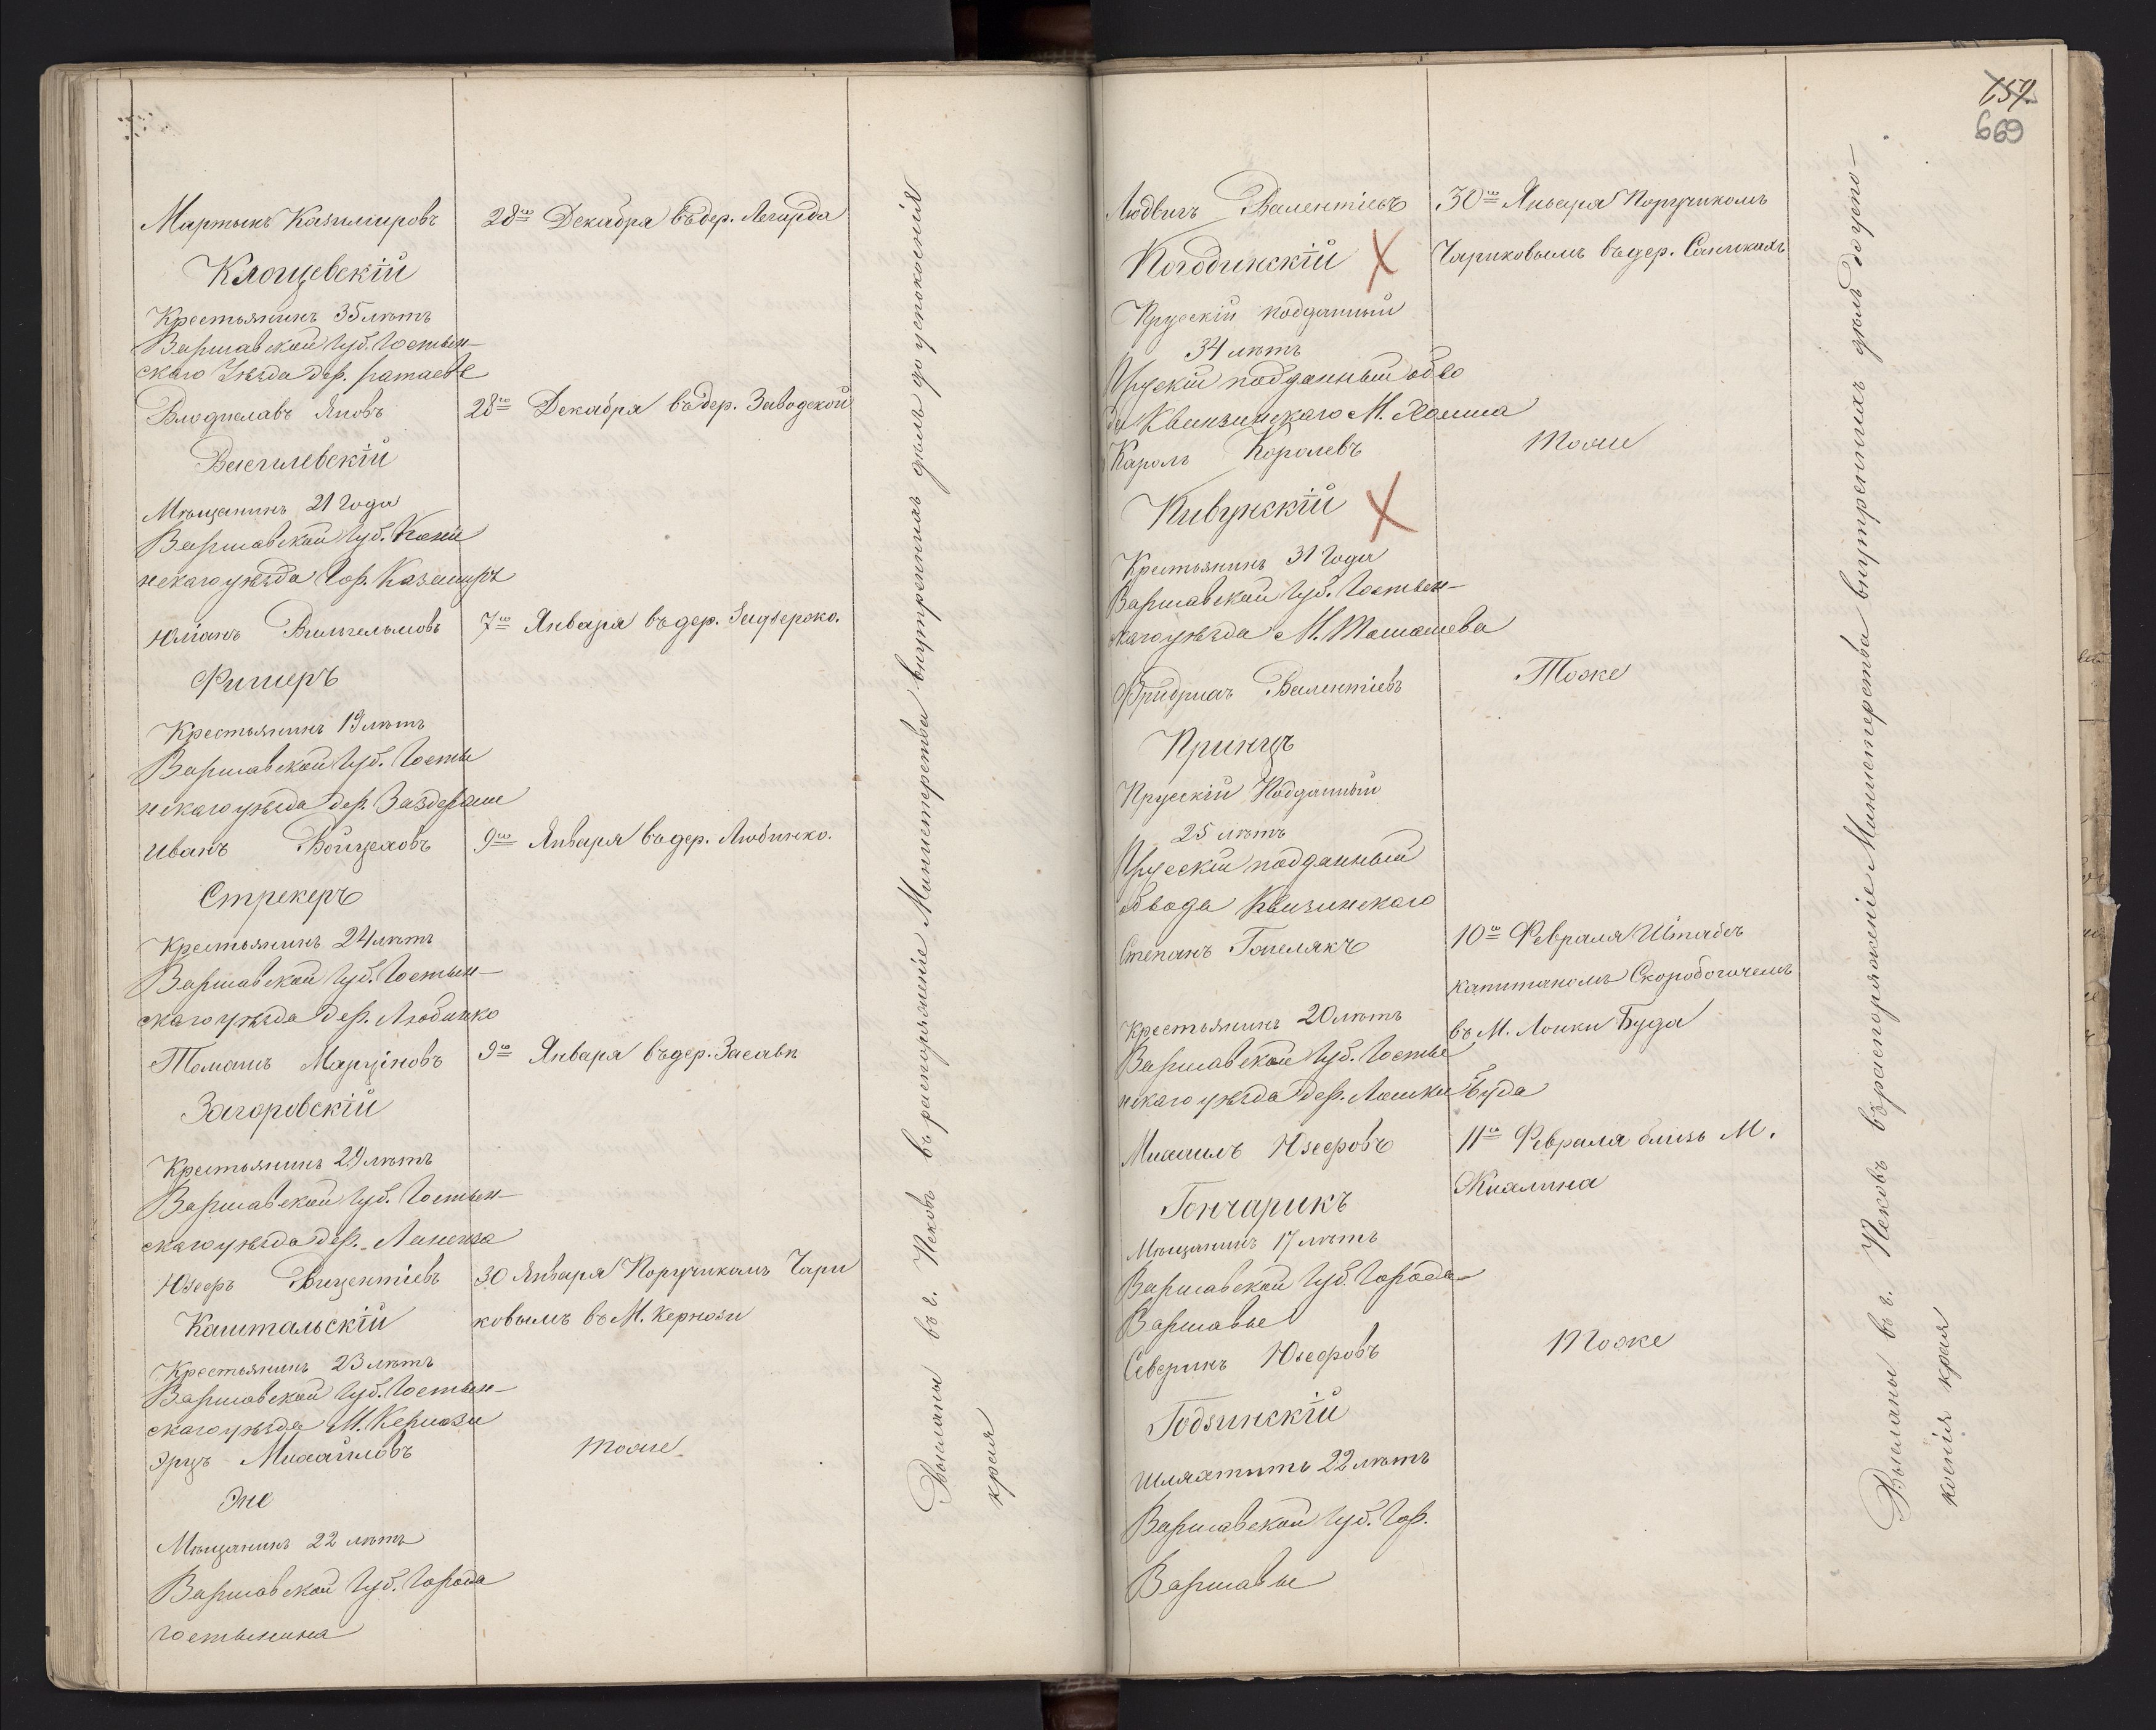 Мартынъ Казимировъ
28го Декабря въ дер. Легарда
Клощевскій
Крестьянинъ 35 лѣтъ
Варшавской Губ. Гостын-
скаго Уѣзда дер.
Владиславъ Яновъ
28го Декабря въ дер. Заводской
Василевскій
Мѣщанинъ 21 Года
Варшавской Губ. Кони
нскаго уѣзда Гор. Казимиръ
Юліанъ Вильгельмовъ
7го Января въ дер.
Фишеръ
Крестьянинъ 19 лѣтъ
Варшавской Губ. Госты
нскаго уѣзда дер.
Иванъ Войцеховъ
9го Января въ дер. Любинко.
Стрекеръ
Крестьянинъ 24 лѣтъ
Варшавской Губ. Гостын-
скаго уѣзда дер. Любинко
Томашъ Марциновъ
9го Января въ дер.
Загоровскій
Крестьянинъ 29 лѣтъ
Варшавской Губ. Гостын-
скаго уѣзда дер.
Юзефъ Вицентіевъ
30 Января Поручикомъ Чари
Каштальскій
ковымъ въ М. Кернози
Крестьянинъ 23 лѣтъ
Варшавской Губ. Гостын-
скаго уѣзда М. Кернози
Михайловъ
тоже
Мѣщанинъ 22 лѣтъ
Варшавской Губ. Города
Гостынина
Высланы въ г. Псковъ въ распоряженіе Министерства внутреннихъ дѣлъ до успокоенія
края
157.
669
Людвигъ Валентіевъ
30го Января Поручикомъ
Погодинскій
Чариковымъ въ дер. Санникахъ
Прускій подданный
34 лѣтъ
Прускій подданный обво
да Квизинскаго М.
Кароль Королевъ
тоже
Пивунскій
Крестьянинъ 31 Года
Варшавской Губ. Гостын-
скаго уѣзда М. Томашева
Фридрихъ Валентіевъ
Тоже
Принцъ
Прускій Подданный
25 лѣтъ
Прускій подданный
обвода Квизинскаго
Степанъ Гонселякъ
10го Февраля Штабсъ
капитаномъ Скоробогачемъ
Крестьянинъ 20 лѣтъ
въ М. Лонки Буда
Варшавской Губ. Госты
нскаго уѣзда дер. Лонки Буда
Михаилъ Юзефовъ
11го Февраля близь М.
Жихлина
Гончарикъ
Мѣщанинъ 17 лѣтъ
Варшавской Губ. Города
Варшавы
Северинъ Юзефовъ
Тоже
Годзинскій
Шляхтичъ 22 лѣтъ
Варшавской Губ. Гор.
Варшавы
Высланы въ г. Псковъ въ распоряженіе Министерства внутреннихъ дѣлъ до успо-
коенія края